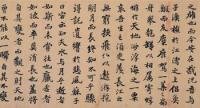 之雄也而今安在哉況吾與
子漁樵於江渚之上侶魚
鰕而友麋鹿駕一葉之扁
舟舉匏樽以相屬寄蜉蝣
於天地渺滄海之一粟
哀吾生之須臾羨長江之
無窮挾飛仙以遨遊抱
明月而長終知不可乎驟
得託遺響於悲風蘇子
曰客亦知夫水與月乎逝者
如斯而未嘗往也盈虛者
如彼而卒莫消長也蓋將
自其變者而觀之則天地
曾不能以一瞬自其不